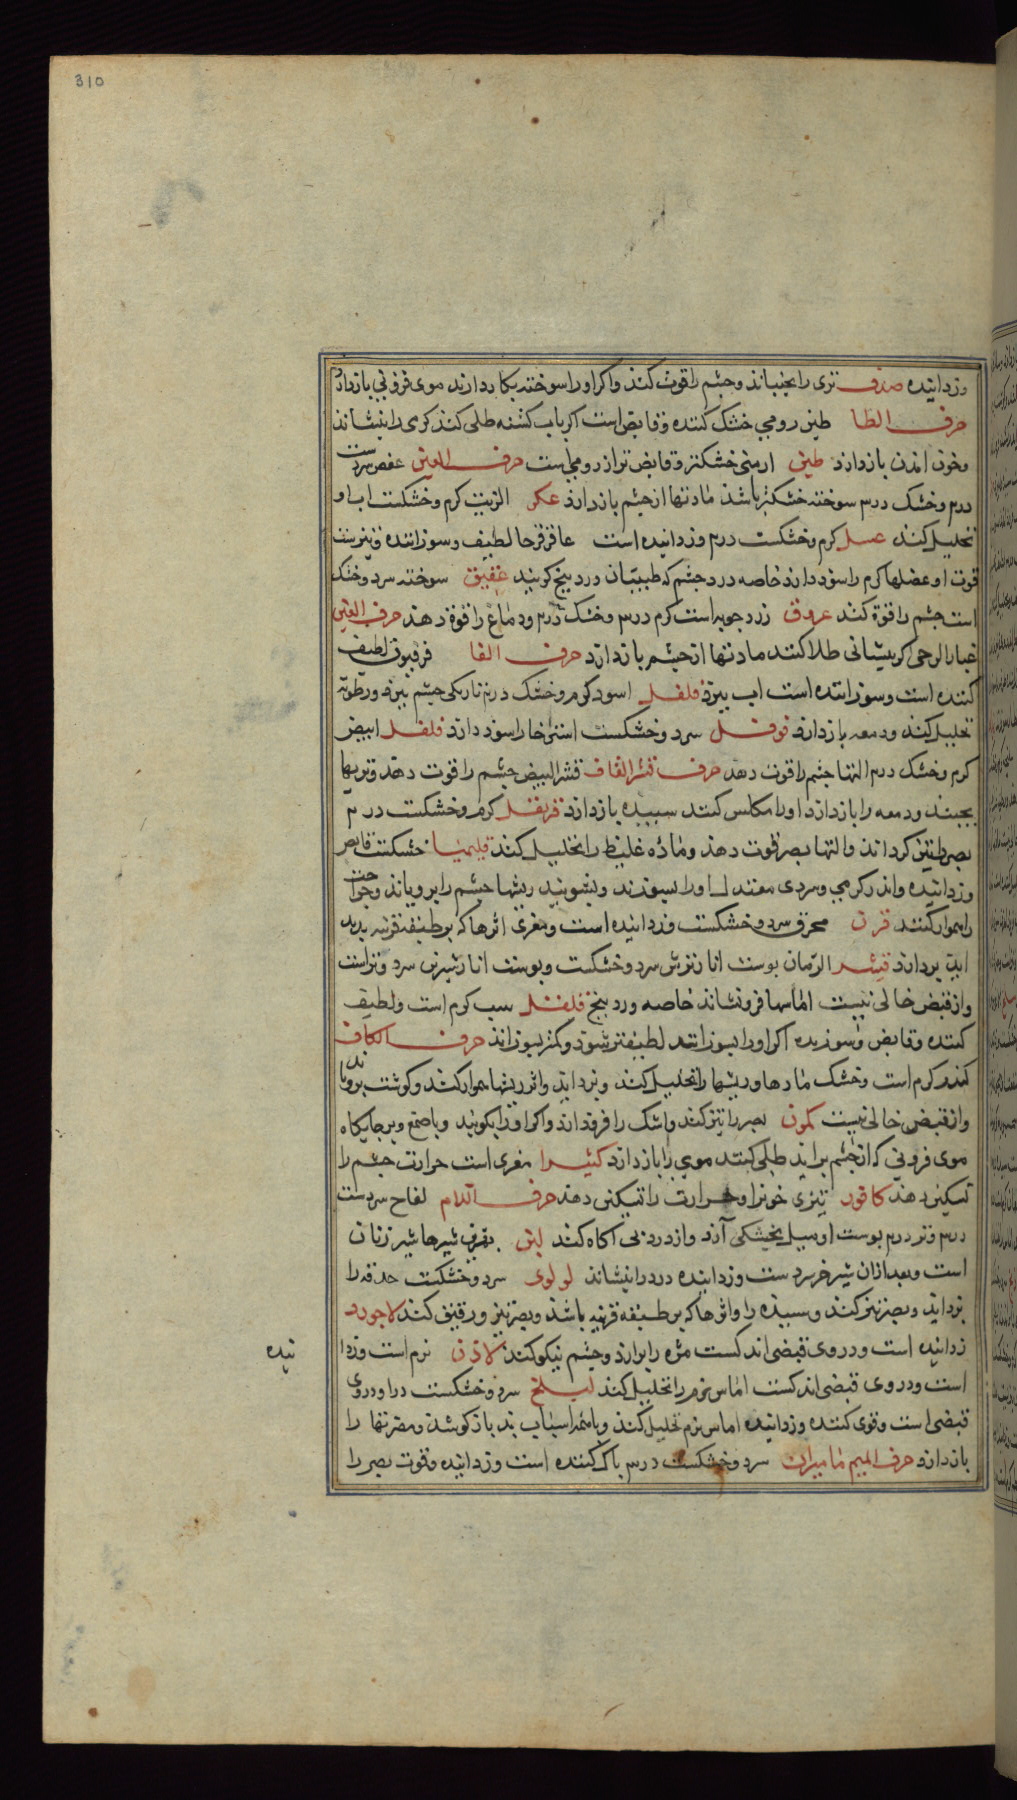 310
وزداینده صدف تری را بجنباند وچشم را قوت کند واکر اورا سوخته بکار دارند موی فزونی بازدارد
حرف الطا طین رومی خشک کننده وقابض است اکر باب کشنه طلی کند کری را بنشاند
وخون امدن بازدارد طین ارمنی خشکتر وقابض تر از رومی است حرف العین عفص سردست
درم وخشک درم سوخته خشکتر باشد مادتها از چشم بازدارد عکر الزیت کرم وخشکست اب او
تحلیل کند عسل کرم وخشکست درم وزداینده است عاقرقرحا لطیف وسوزاننده وتیزست
قوت او عضلها کرم را سود دارد خاصه درد چشم که طبیبان وردینج کویند عقیق سوخته سرد وخشک
است چشم را قوة کند عروق زرد چوبه است کرم درم وخشک درم ودماغ را قوة دهد حرف الغین
غبار الرحی اکر بیشانی طلا کنند مادتها از چشم بازدارد حرف الفا فرفیون لطیف
کننده است وسوزاننده است اب ببرد فلفل اسود کرم وخشک درم تاریکی چشم ببرد ورطوبة
تحلیل کند ودمعه بازدارد فوفل سرد وخشکست استرخا را سود دارد فلفل ابیض
کرم وخشک درم التها چشم را قوت دهد حرف القاف قشر البیض چشم را قوت دهد وتریها
بجیند ودمعه را بازدارد اورا مکلس کنند سبیده بازدارد قرنفل کرم وخشکست درم
بصر را تیز کرداند والتها بصر قوت دهد وماده غلیظ را تحلیل کند قلیمیا خشکست قابض
وزداینده واندر کرمی وسردی معتدل اورا بسوزند وبشویند ریشها چشم را برویاند وجراحت
را هموار کنند قرن محرق سرد وخشکست وزداینده است ومغری اثرها که بر طبقه قرنیه بدید
اید بردارد قشر الرمان بوست انار ترش سرد وخشکست وبوست انار شیرین سرد وتر است
واز قبض خالی نیست اماسها فرونشاند خاصه وردینج سبب کرم است ولطیف
کننده وقابض وسوزنده اکر اورا بسوزانند لطیفتر شود وکمتر سوزاند حرف الکاف
کندر کرم است وخشک مادها وریشها را تحلیل کند وبزداید واثر ریشها هموار کند وکوشت برویاند
واز قبض خالی نیست کمون بصر را تیز کند واشک را فرود ارد واکر اورا بکویند وباصمغ وبر جایکاه
موی فزونی که از چشم براید طلی کنند موی را بازدارد کثیرا مغری است حرارت چشم را
تسکین دهد کافور تیزی خونرا وحرارت را تسکین دهد حرف اللام لفاح سردست
درم وتر درم بوست او میل بخشکی آرد واز درد بی اکاه کند لبن بهترین شیرها شیر زنان
است وبعد ازان شیر خر سردست وزداینده درد را بنشاند لولو سرد وخشکست حدقه را
بزداید وبصر تیز کند وسبیده را واثرها که بر طبقه قرنیه باشد وبصر تیز ورقیق کند لاجورد
زداینده است ودر وی قبضی اندکست مژه را برارد وچشم نیکو کند لاذن نرم است وزدا
ینده
است ودر وی قبضی اندکست اماس نرم را تحلیل کند سرد وخشکست در او در وی
قبضی است وقوی کننده وزداینده اماس نرم تحلیل کند وباهمه اسباب بد بازکوشد ومضرتها را
بازدارد حرف المیم مامیران سرد وخشکست درم باک کننده است وزداینده وقوت بصر را